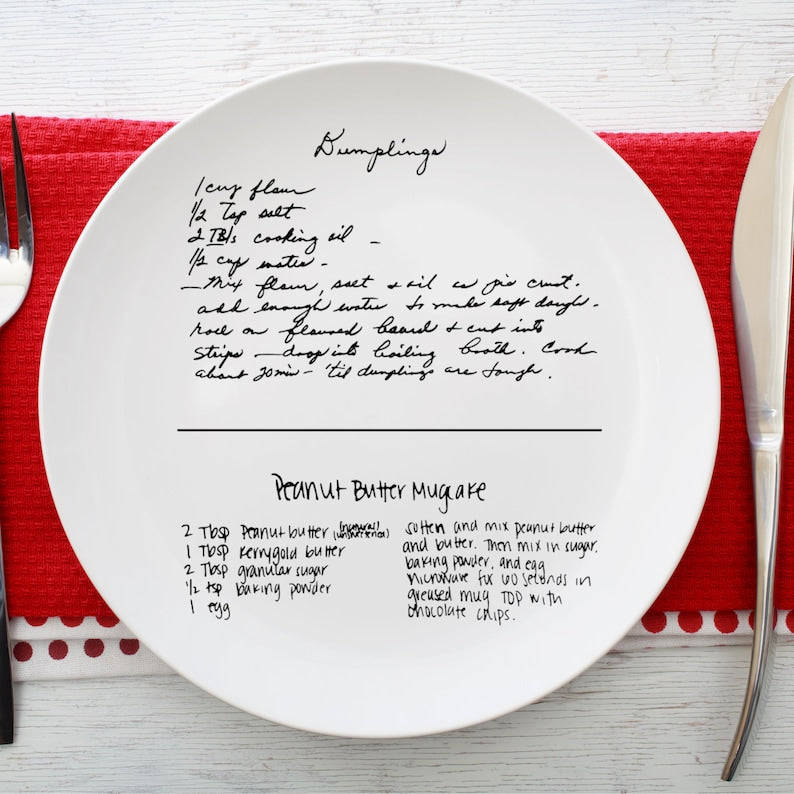 Dumplings
1 cup flour
1/2 Tsp salt
2 TBls cooking oil -
1/2 cup water -
- Mix flour, salt & oil as pie crust.
add enough water to make soft dough -
Roll on floured board & cut into
strips - drop into boiling broth. Cook
about 20 min - 'til dumplings are tough.
Peanut Butter Mugcake
2 Tbsp Peanut butter (natural) (unsweetened)
1 Tbsp kerrygold butter
2 Tbsp granular sugar
1/2 tsp baking powder
1 egg
soften and mix peanut butter
and butter. Then mix in sugar,
baking powder, and egg
microwave for 60 seconds in
greased mug TOP with
chocolate chips.